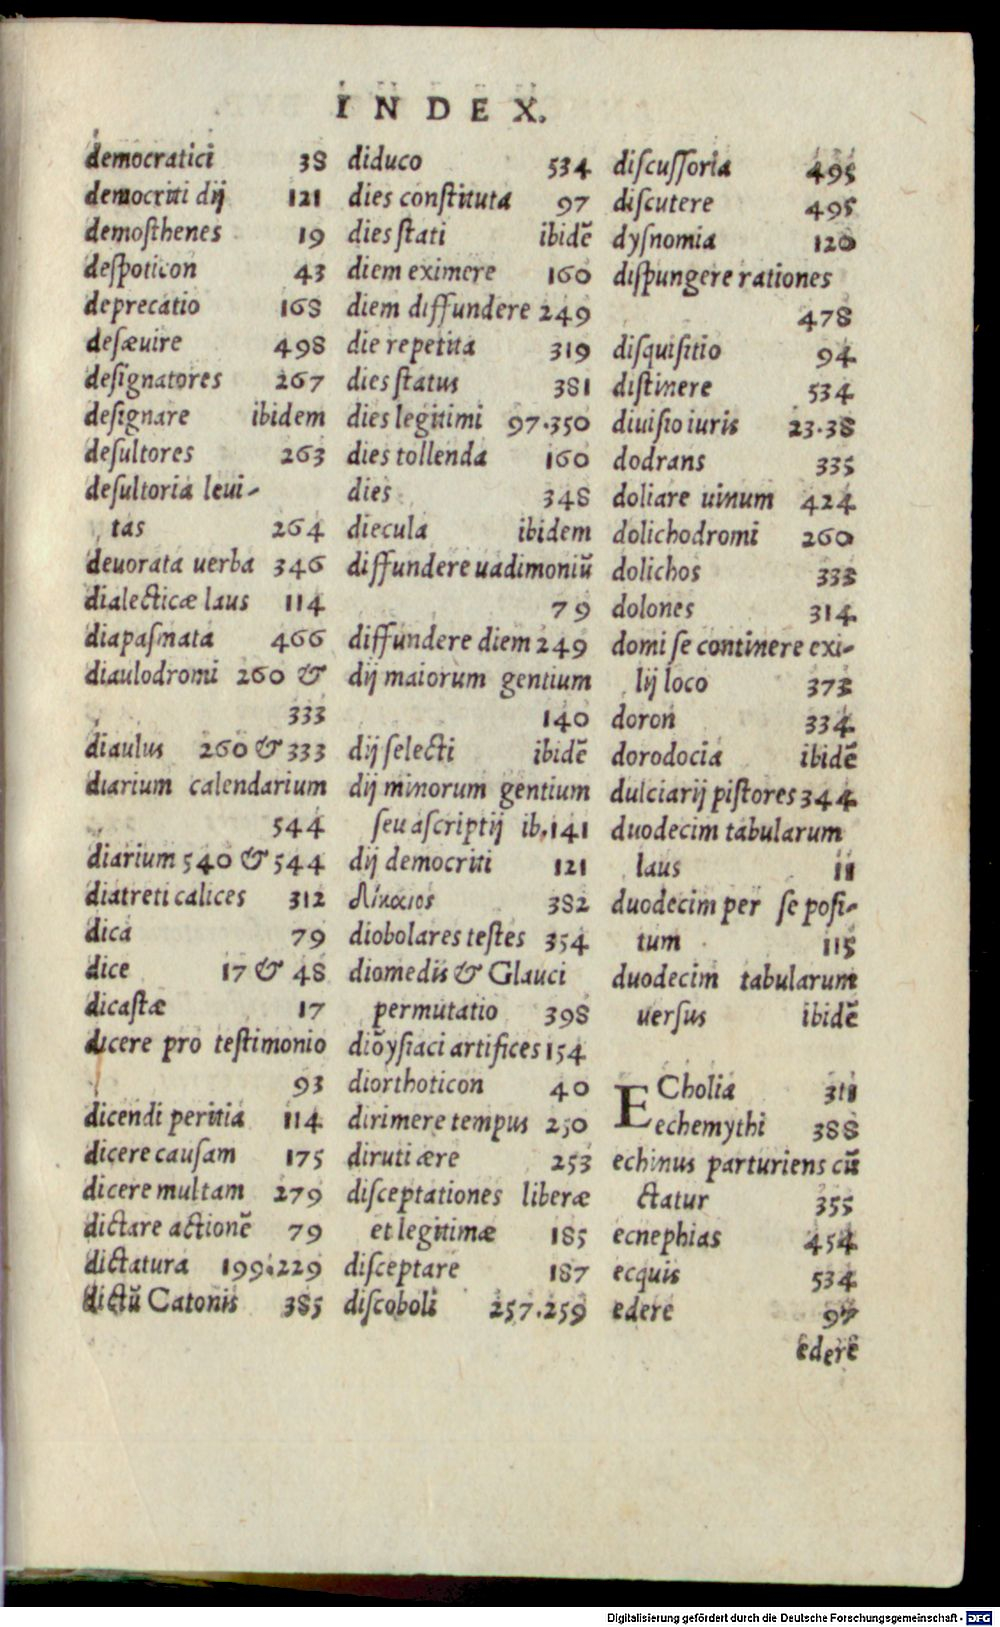 INDEX.
democratici 38
democriti dij 121
demosthenes 19
despoticon 43
deprecatio 168
desæuire 498
designatores 267
designare ibidem
desultores 263
desultoria leui-
tas 264
deuorata uerba 346
dialecticæ laus 114
diapasmata 466
diaulodromi 260 &
333
diaulus 260 & 333
diarium calendarium
544
diarium 540 & 544
diatreti calices 312
dica 79
dice 17 & 48
dicastæ 17
dicere pro testimonio
93
dicendi peritia 114
dicere causam 175
dicere multam 279
dictare actionẽ 79
dictatura 199.229
dictũ Catonis 385
diduco 534
dies constituta 97
dies stati ibidẽ
diem eximere 160
diem diffundere 249
die repetita 319
dies status 381
dies legitimi 97.350
dies tollenda 160
dies 348
diecula ibidem
diffundere uadimoniũ
79
diffundere diem 249
dij maiorum gentium
140
dij selecti ibidẽ
dij minorum gentium
seu ascriptij ib.141
dij democriti 121
δίκαιος 382
diobolares testes 354
diomedis & Glauci
permutatio 398
diõysiaci artifices 154
diorthoticon 40
dirimere tempus 250
diruti ære 253
disceptationes liberæ
et legitimæ 185
disceptare 187
discoboli 257.259
discussoria 495
discutere 495
dysnomia 120
dispungere rationes
478
disquisitio 94
distinere 534
diuisio iuris 23.38
dodrans 335
doliare uinum 424
dolichodromi 260
dolichos 333
dolones 314
domi se continere exi-
lij loco 373
doron 334
dorodocia ibidẽ
dulciarij pistores 344
duodecim tabularum
laus 11
duodecim per se posi-
tum 115
duodecim tabularum
uersus ibidẽ
ECholia 311
echemythi 388
echinus parturiens cũ
ctatur 355
ecnephias 454
ecquis 534
edere 97
edere
Digitalisierung gefördert durch die Deutsche Forschungsgemeinschaft - DFG